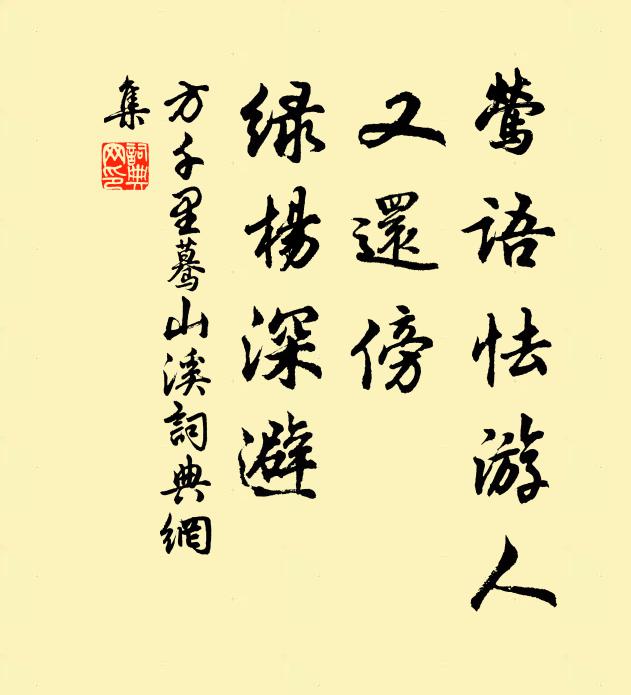 鶯語怯游人
又還傍
綠楊深避
方千里驀山溪詞典網
集
詞典網印